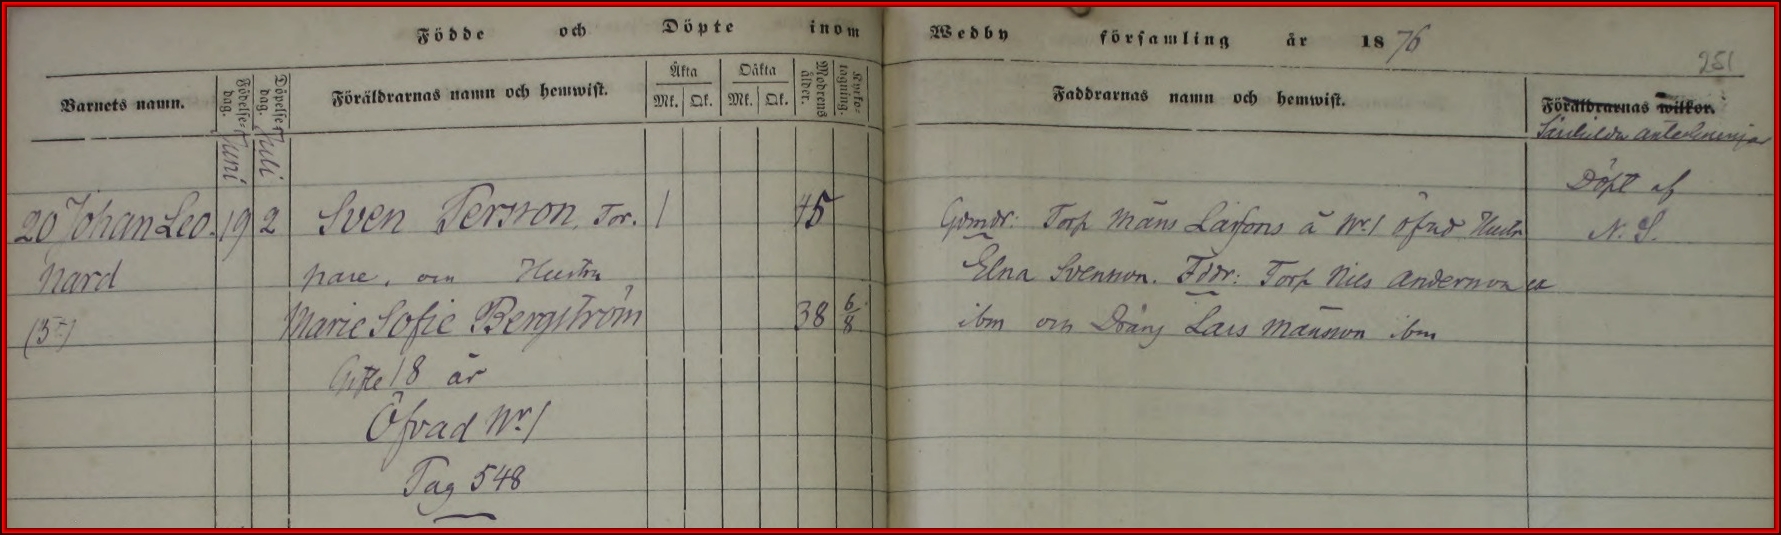 Födde och Döpte inom Wedby församling år 1876
251
Barnets namn. Födelse-dag. Döpelse-dag. Föräldrarnas namn och hemwist. Äkta Oäkta Mk. Qk. Mk. Qk. Modrens ålder. Kyrko-tagning. Faddrarnas namn och hemwist. Föräldrarnas wilkor.
Särskilda anteckningar
Juni Juli
Döpt af
20 Johan Leo- 19 2 Sven Persson, Tor- 1 45 Gvmdr: Torp Måns Larssons å Nr 1 Öfvad Hustru N. S.
nard pare, och Hustru Elna Svensson. Fddr: Torp Nils Andersson
Marie Sofie Bergström 38 6/8 ibm och Dräng Lars Månsson ibm
Gifte 18 år
Öfvad Nr 1
Pag 548